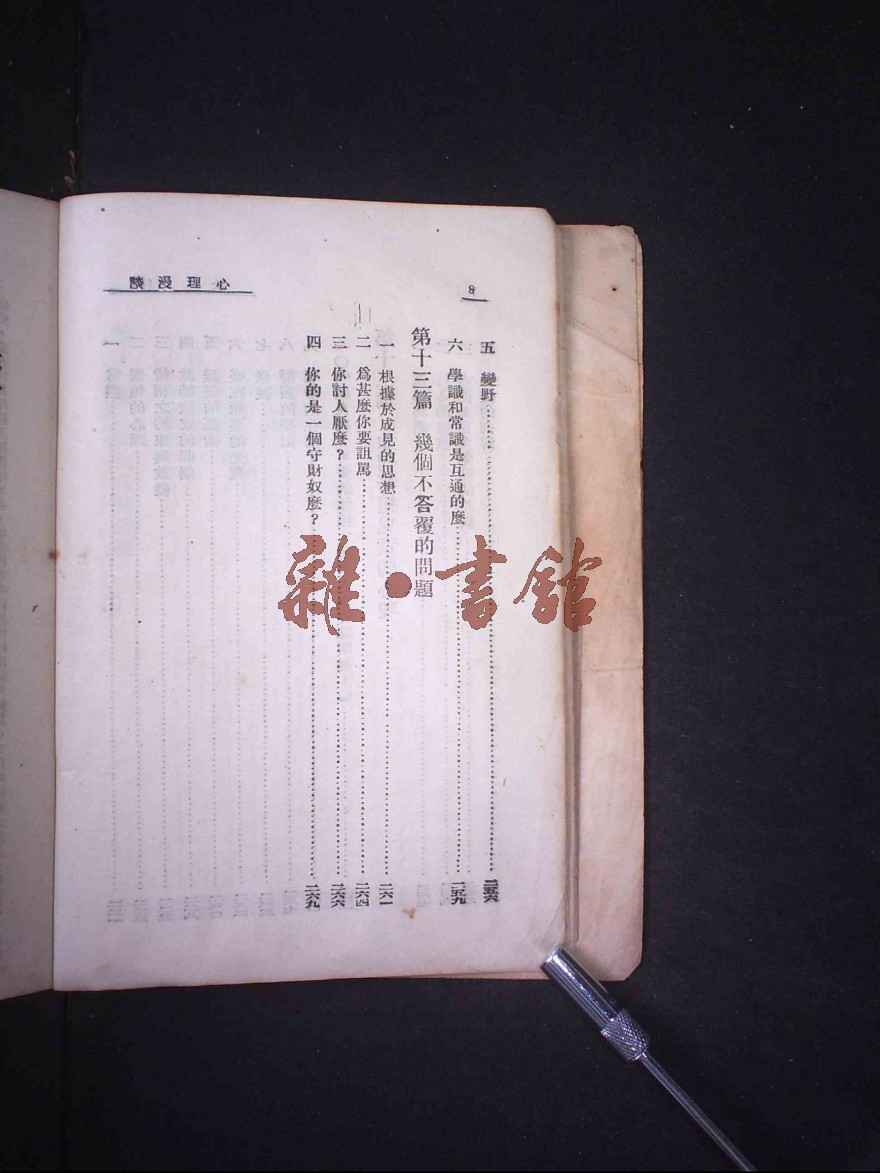 心理漫談
8
五 變野 二五六
六 學識和常識是互通的麼 二五九
第十三篇 幾個不答覆的問題
一 根據於成見的思想 二六一
二 爲甚麼你要詛罵 二六四
三 你討人厭麼？ 二六六
四 你的是一個守財奴麼？ 二六九
雜·書館